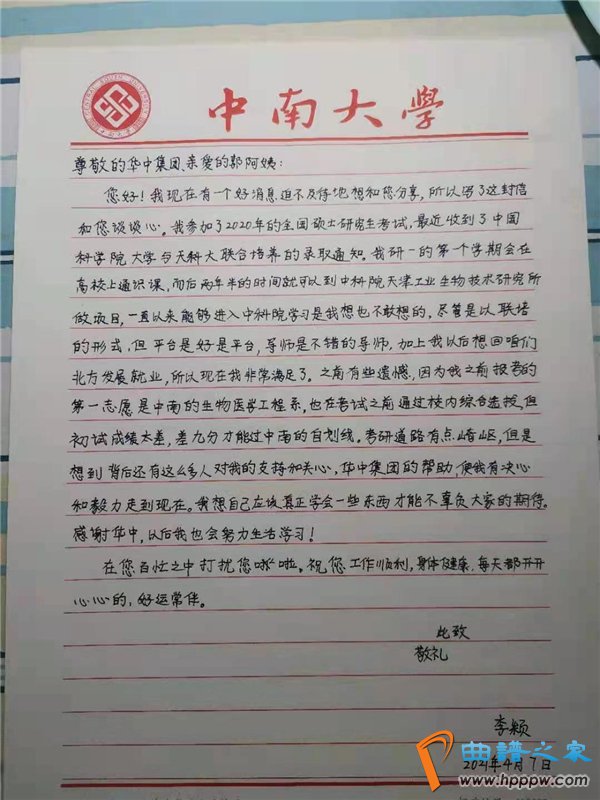 中南大學
尊敬的华中集团、亲爱的郭阿姨：
您好！我现在有一个好消息迫不及待地想和您分享，所以写了这封信
和您谈谈心。我参加了2020年的全国硕士研究生考试，最近收到了中国
科学院大学与天科大联合培养的录取通知。我研一的第一个学期会在
高校上通识课，而后两年半的时间就可以到中科院天津工业生物技术研究所
做项目，一直以来能够进入中科院学习是我想也不敢想的，尽管是以联培
的形式，但平台是好是平台，导师是不错的导师，加上我以后想回咱们
北方发展就业，所以现在我非常满足了。之前有些遗憾，因为我之前报考的
第一志愿是中南的生物医学工程系，也在考试之前通过校内综合选拔，但
初试成绩太差，差九分才能过中南的自划线。考研道路有点崎岖，但是
想到背后还有这么多人对我的支持和关心，华中集团的帮助，使我有决心
和毅力走到现在。我想自己应该真正学会一些东西才能不辜负大家的期待。
感谢华中，以后我也会努力生活学习！
在您百忙之中打扰您啦。祝您工作顺利，身体健康，每天都开开
心心的，好运常伴。
此致
敬礼
李颖
2021年4月7日
曲谱之家
www.hppw.com